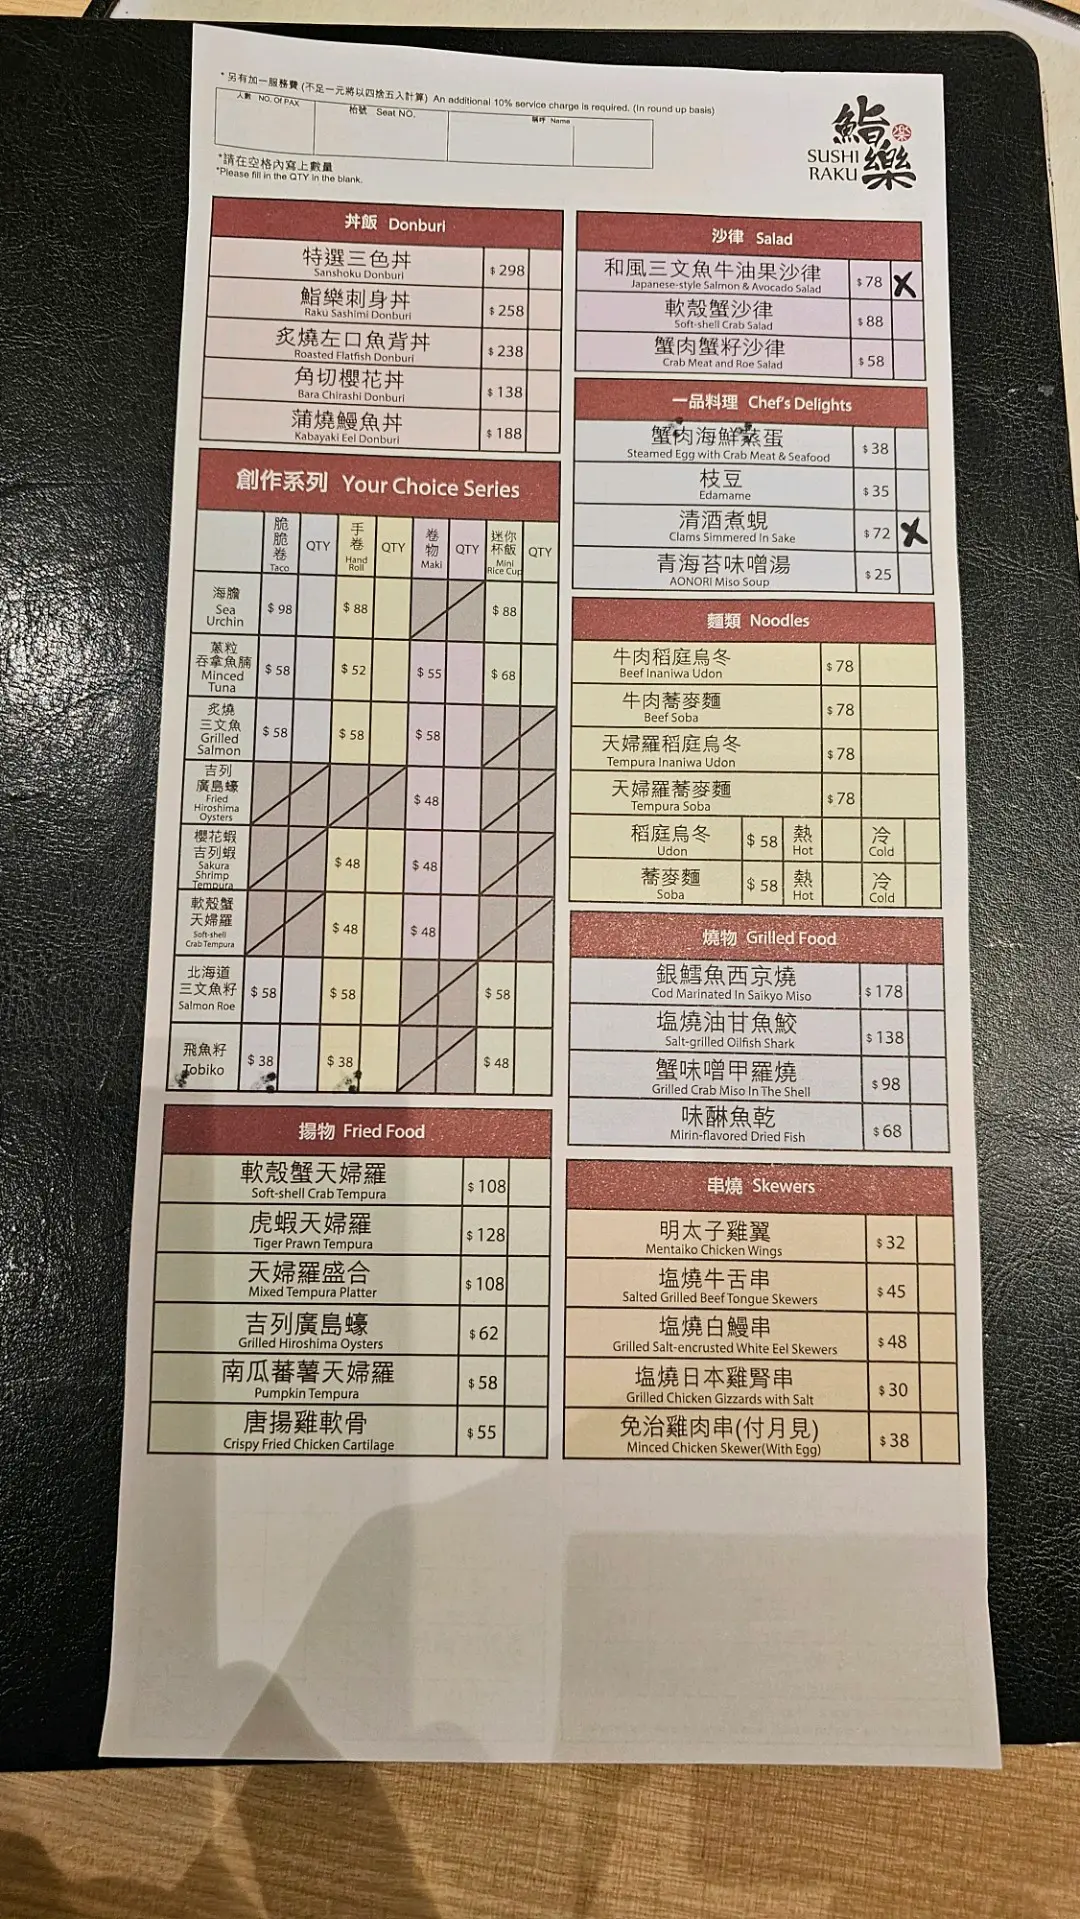 *另有加一服務費 (不足一元將以四捨五入計算) An additional 10% service charge is required. (In round up basis)
人數 NO. Of PAX
枱號 Seat NO.
稱呼 Name
*請在空格內寫上數量
*Please fill in the QTY in the blank.
鮨樂
SUSHI
RAKU
丼飯 Donburi
特選三色丼 $ 298
Sanshoku Donburi
鮨樂刺身丼 $ 258
Raku Sashimi Donburi
炙燒左口魚背丼 $ 238
Roasted Flatfish Donburi
角切櫻花丼 $ 138
Bara Chirashi Donburi
蒲燒鰻魚丼 $ 188
Kabayaki Eel Donburi
創作系列 Your Choice Series
脆脆卷 Taco QTY 手卷 Hand Roll QTY 卷物 Maki QTY 迷你杯飯 Mini Rice Cup QTY
海膽
Sea
Urchin
$ 98 $ 88 $ 88
蔥粒
吞拿魚腩
Minced
Tuna
$ 58 $ 52 $ 55 $ 68
炙燒
三文魚
Grilled
Salmon
$ 58 $ 58 $ 58
吉列
廣島蠔
Fried
Hiroshima
Oysters
$ 48
櫻花蝦
吉列蝦
Sakura
Shrimp
Tempura
$ 48 $ 48
軟殼蟹
天婦羅
Soft-shell
Crab Tempura
$ 48 $ 48
北海道
三文魚籽
Salmon Roe
$ 58 $ 58 $ 58
飛魚籽
Tobiko
$ 38 $ 38 $ 48
揚物 Fried Food
軟殼蟹天婦羅 $ 108
Soft-shell Crab Tempura
虎蝦天婦羅 $ 128
Tiger Prawn Tempura
天婦羅盛合 $ 108
Mixed Tempura Platter
吉列廣島蠔 $ 62
Grilled Hiroshima Oysters
南瓜蕃薯天婦羅 $ 58
Pumpkin Tempura
唐揚雞軟骨 $ 55
Crispy Fried Chicken Cartilage
沙律 Salad
和風三文魚牛油果沙律 $ 78 X
Japanese-style Salmon & Avocado Salad
軟殼蟹沙律 $ 88
Soft-shell Crab Salad
蟹肉蟹籽沙律 $ 58
Crab Meat and Roe Salad
一品料理 Chef's Delights
蟹肉海鮮蒸蛋 $ 38
Steamed Egg with Crab Meat & Seafood
枝豆 $ 35
Edamame
清酒煮蜆 $ 72 X
Clams Simmered In Sake
青海苔味噌湯 $ 25
AONORI Miso Soup
麵類 Noodles
牛肉稻庭烏冬 $ 78
Beef Inaniwa Udon
牛肉蕎麥麵 $ 78
Beef Soba
天婦羅稻庭烏冬 $ 78
Tempura Inaniwa Udon
天婦羅蕎麥麵 $ 78
Tempura Soba
稻庭烏冬 $ 58 熱 冷
Udon Hot Cold
蕎麥麵 $ 58 熱 冷
Soba Hot Cold
燒物 Grilled Food
銀鱈魚西京燒 $ 178
Cod Marinated In Saikyo Miso
塩燒油甘魚鮫 $ 138
Salt-grilled Oilfish Shark
蟹味噌甲羅燒 $ 98
Grilled Crab Miso In The Shell
味醂魚乾 $ 68
Mirin-flavored Dried Fish
串燒 Skewers
明太子雞翼 $ 32
Mentaiko Chicken Wings
塩燒牛舌串 $ 45
Salted Grilled Beef Tongue Skewers
塩燒白鰻串 $ 48
Grilled Salt-encrusted White Eel Skewers
塩燒日本雞腎串 $ 30
Grilled Chicken Gizzards with Salt
免治雞肉串(付月見) $ 38
Minced Chicken Skewer(With Egg)